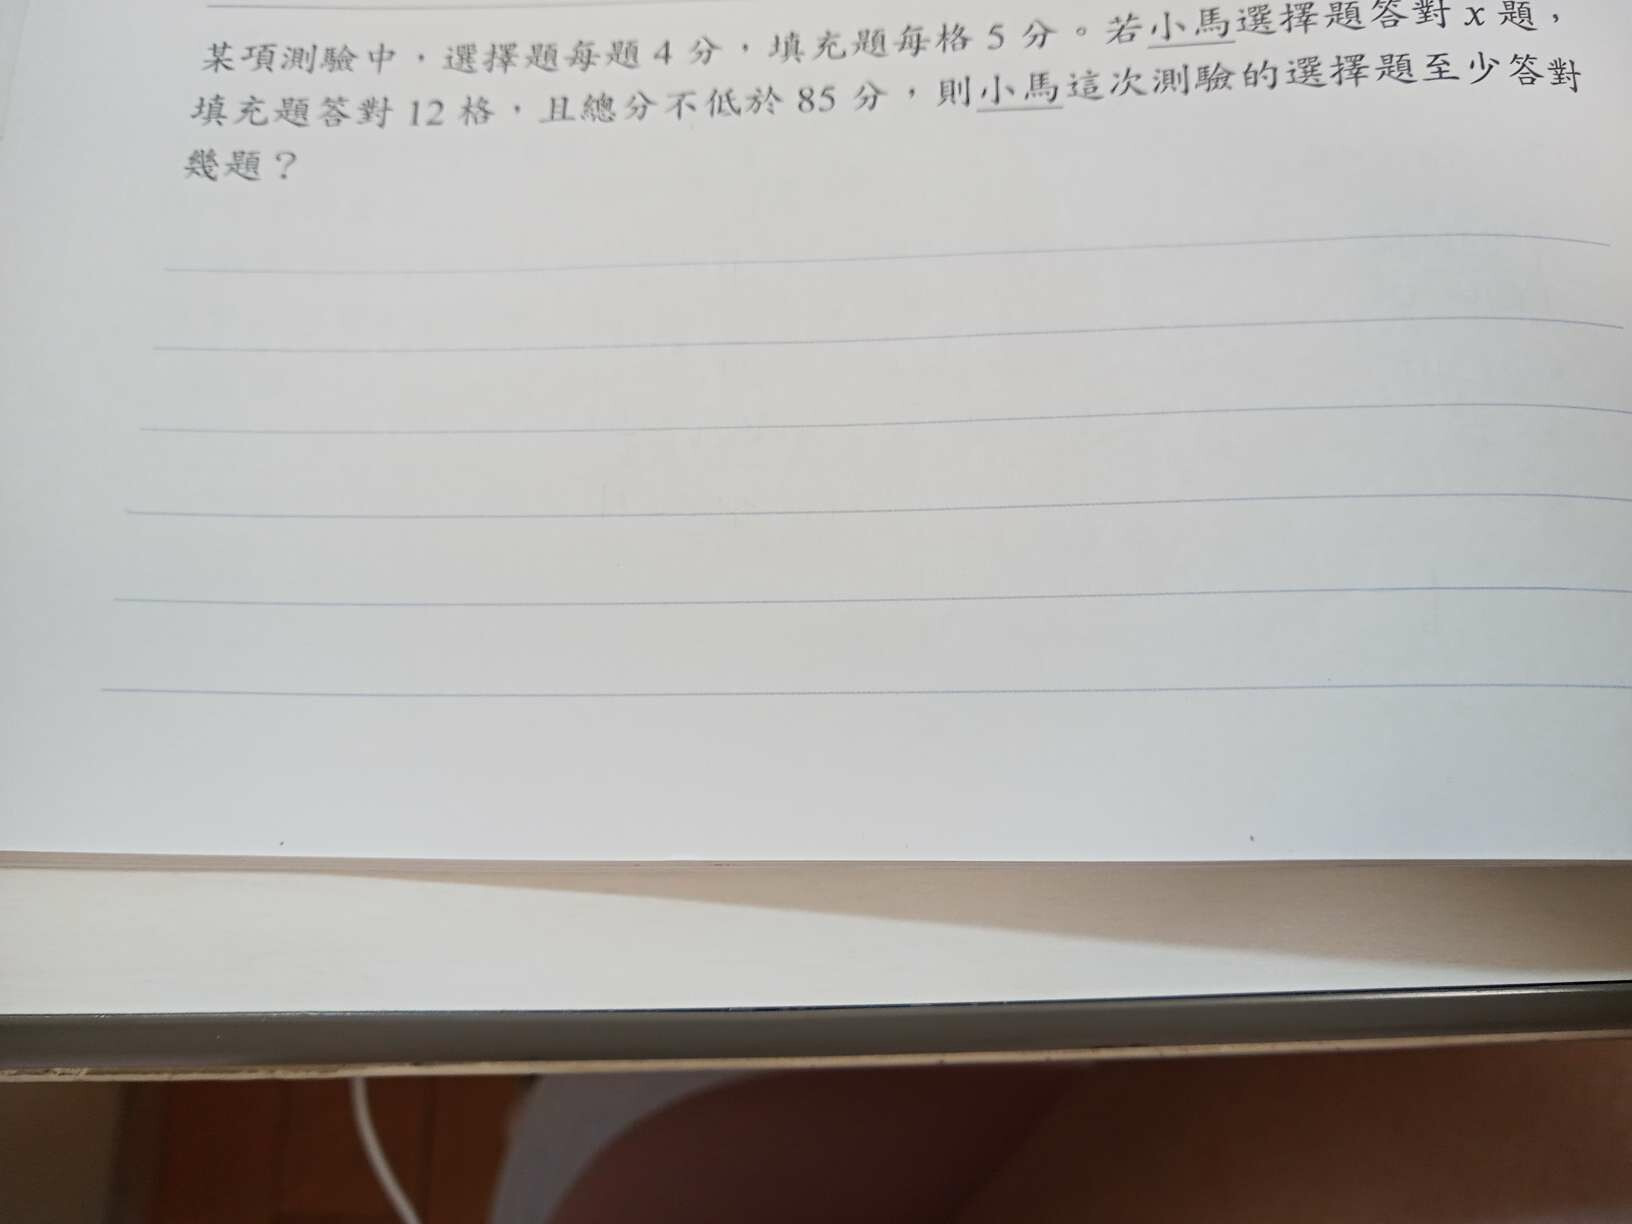 某項測驗中，選擇題每題 4 分，填充題每格 5 分。若小馬選擇題答對 x 題，
填充題答對 12 格，且總分不低於 85 分，則小馬這次測驗的選擇題至少答對
幾題？